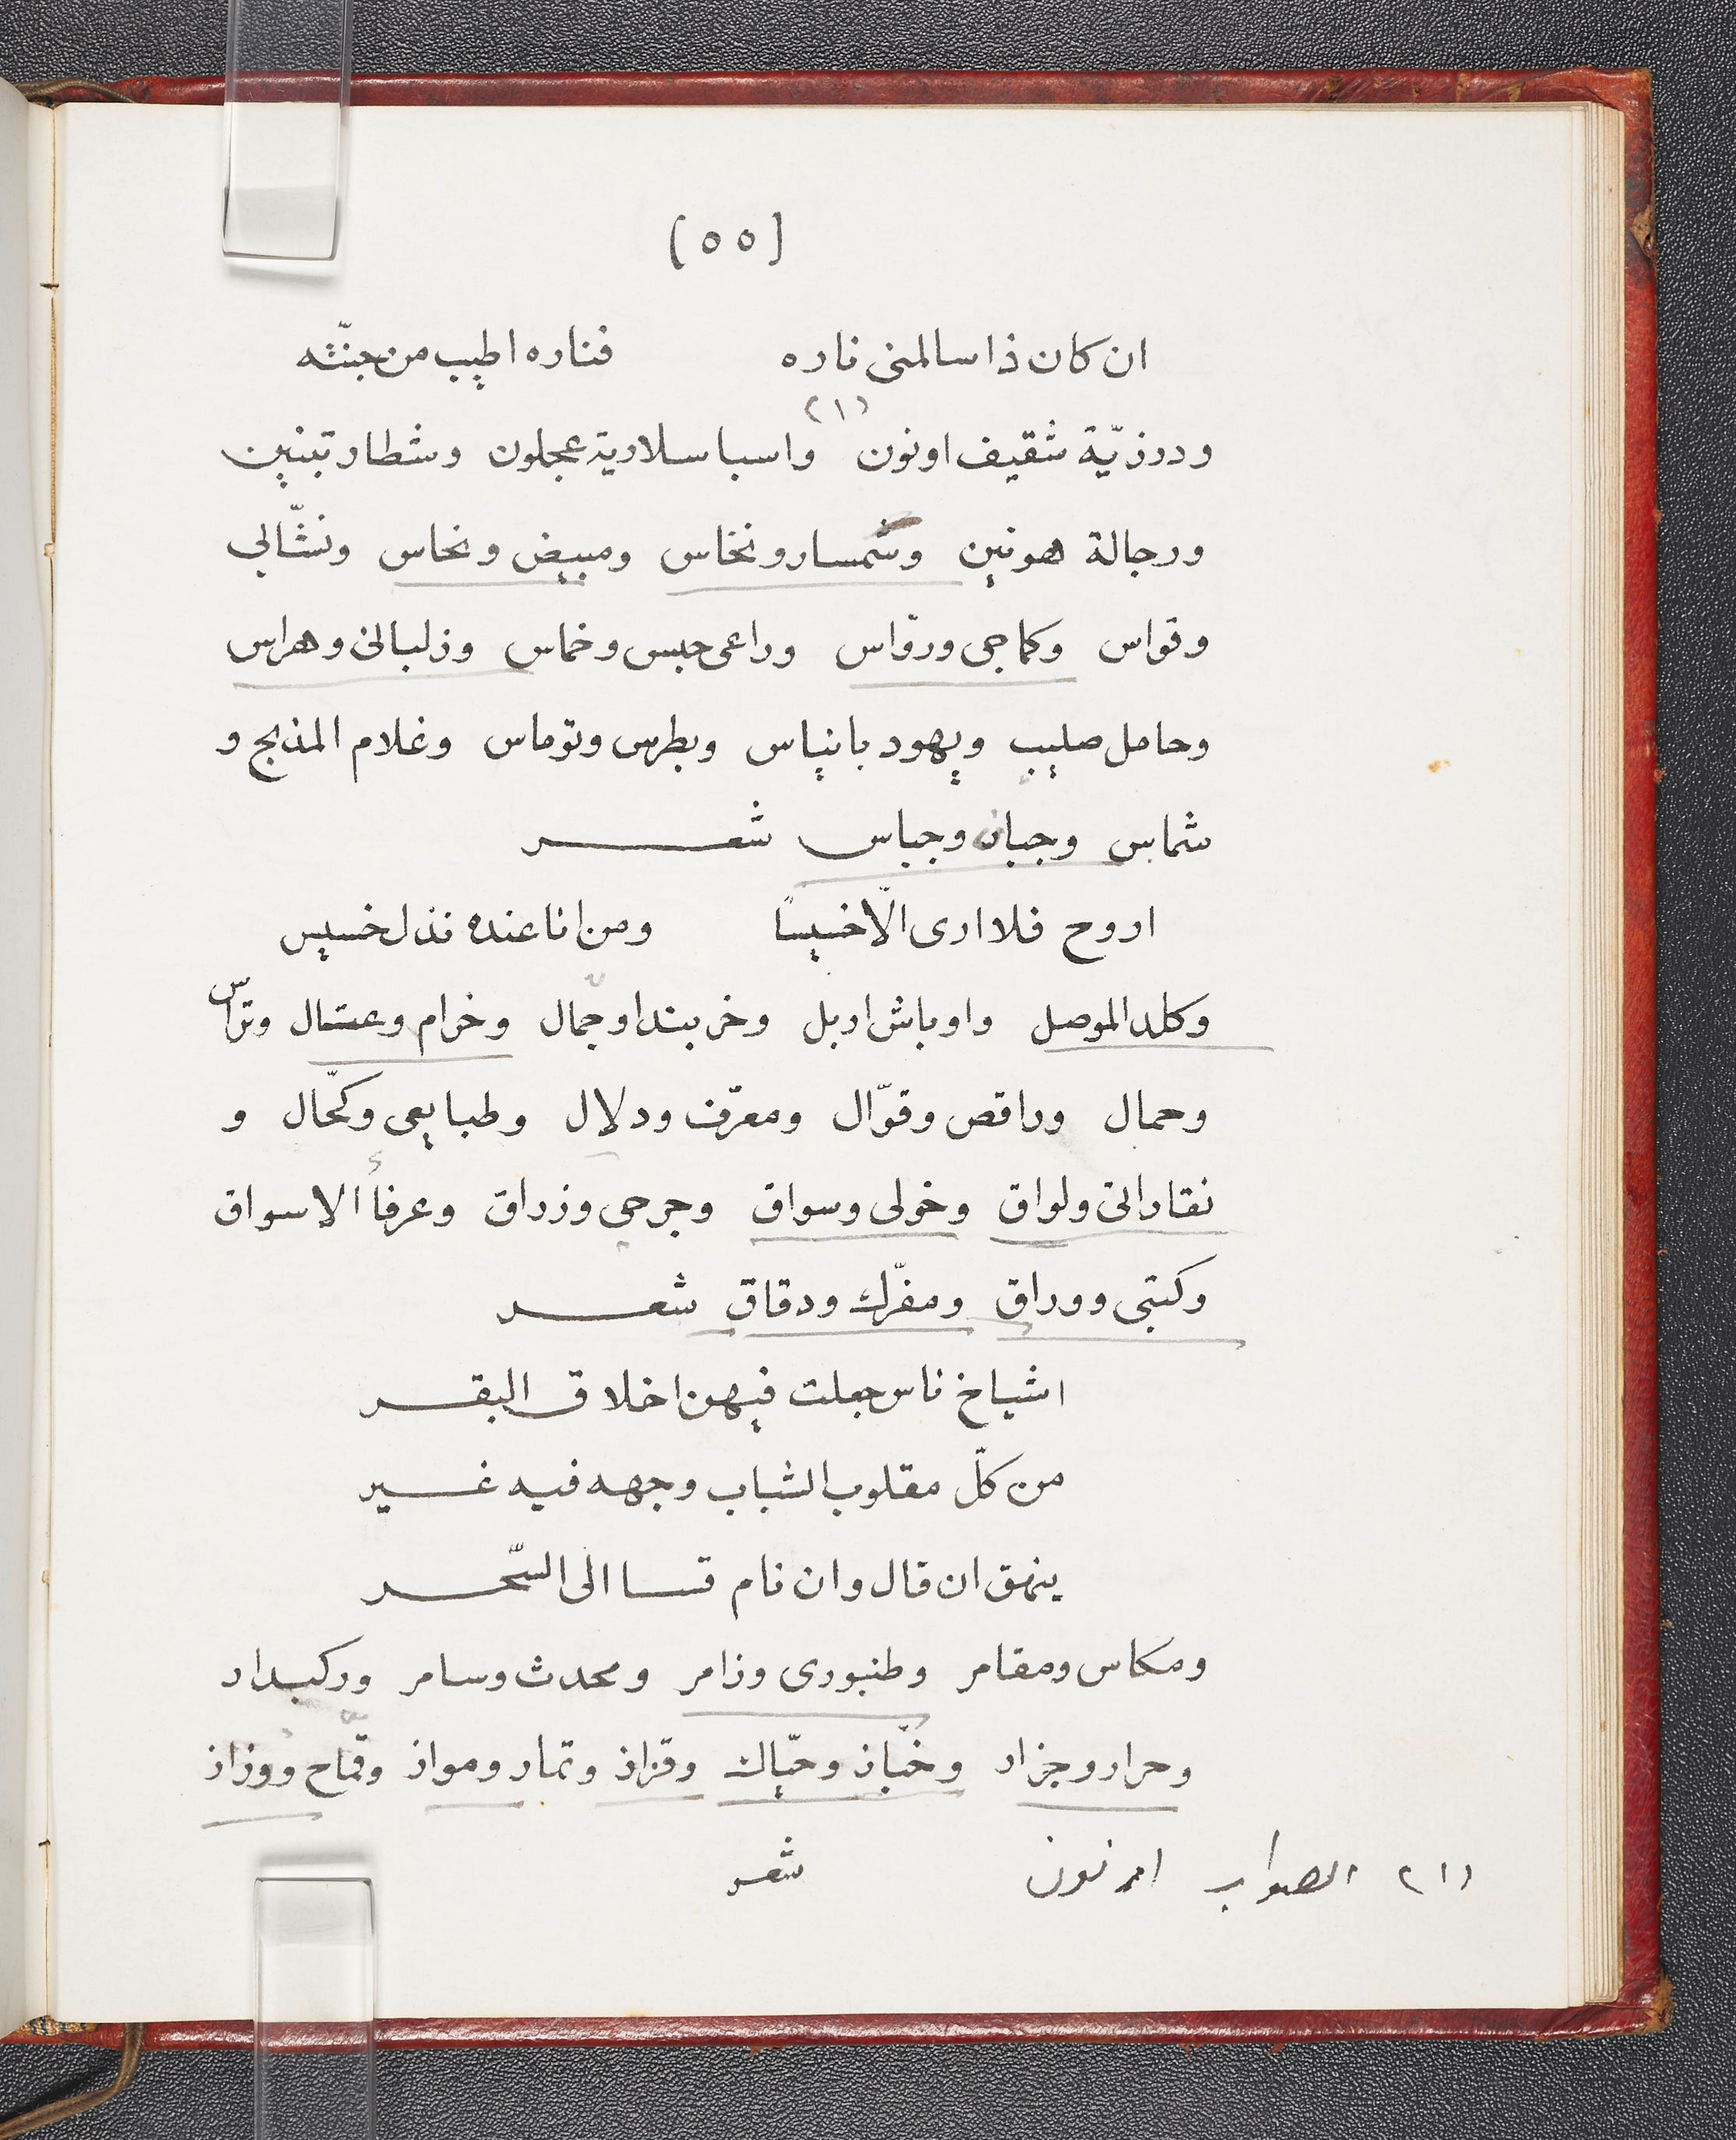 [٥٥]
ان كان ذا سالمنى ناره فناره اطيب من جنّته
(١)
ودرزيّة شقيف اونون واسباسلارية عجلون وشطار تبنين
ورجالة هونين وسمسار ونخاس ومبيض ونحاس ونشّالي
وقواس وكماجى وروّاس وراعى حبس وخماس وزلبانى وهراس
وحامل صليب ويهود بانياس وبطرس وتوماس وغلام المذبح و
شماس وجبان وجباس شعر
اروح فلا ارى الّا خسيسًا ومن انا عنده نذل خسيس
وكلد الموصل واوباش اربل وخربندا وجمّال وخرام وعتال وترّاس
وحمال وراقص وقوّال ومعرّف ودلال وطبايعى وكحّال و
نقاراتى ولواق وخولى وسواق وجرحى وزراق وعرفأ الاسواق
وكتبى ووراق ومفرّك ودقاق شعر
اشياخ ناس جعلت فيهن اخلاق البقر
من كلّ مقلوب الشباب وجهه فيه غير
ينهق ان قال وان نام فسا الى السّحر
ومكاس ومقامر وطنبورى وزامر ومحدث وسامر وركبدار
وحرار وجزار وخبّاز وحيّاك وقزاز وتمار ومواز وقمّاح ووزاز
شعر
(١) الصواب ارنون